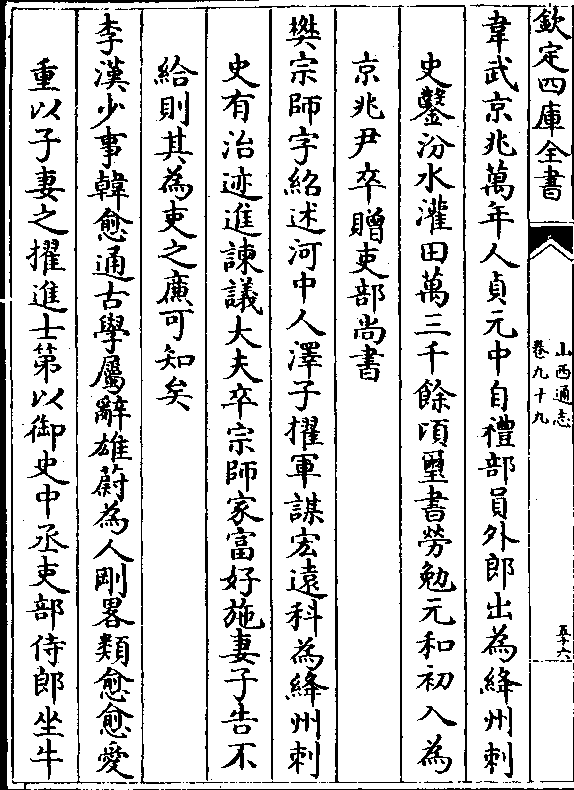 欽定四庫全書
山西通志
卷九十九
五十六
韋武京兆萬年人貞元中自禮部員外郎出為絳州刺
史鑿汾水灌田萬三千餘頃璽書勞勉元和初入為
京兆尹卒贈吏部尚書
樊宗師字紹述河中人澤子擢軍謀宏遠科為絳州刺
史有治迹進諫議大夫卒宗師家富好施妻子告不
給則其為吏之廉可知矣
李漢少事韓愈通古學屬辭雄蔚為人剛畧類愈愈愛
重以子妻之擢進士第以御史中丞吏部侍郎坐牛